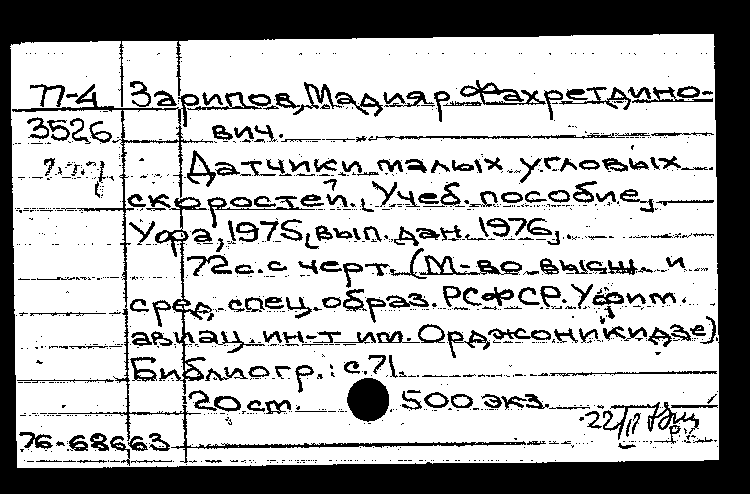 77-4 Зарипов, Мадияр Фахретдино-
3526 вич.
Датчики малых угловых
скоростей. [Учеб. пособие].
Уфа, 1975, [вып. дан. 1976].
72 с. с черт. (М-во высш. и
сред. спец. образ. РСФСР. Уфим.
авиац. ин-т им. Орджоникидзе)
Библиогр.: с. 71.
20 cm. 500 экз.
22/II
76-68663